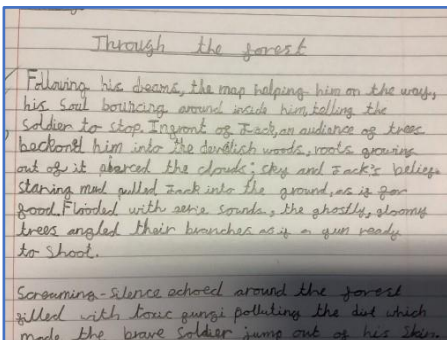 Through the forest
Following his dreams, the map helping him on the way,
his soul bouncing around inside him, telling the
soldier to stop. Infront of Jack, an audience of trees
beckond him into the devilish woods, roots growing
out of it pierced the clouds; sky and Jack's belief
staring mud pulled Jack into the ground, as if for
food. Flooded with eerie sounds, the ghostly, gloomy
trees angled their branches as if a gun ready
to shoot.
Screaming-silence echoed around the forest
filled with toxic fungi polluting the dirt which
made the brave soldier jump out of his skin.